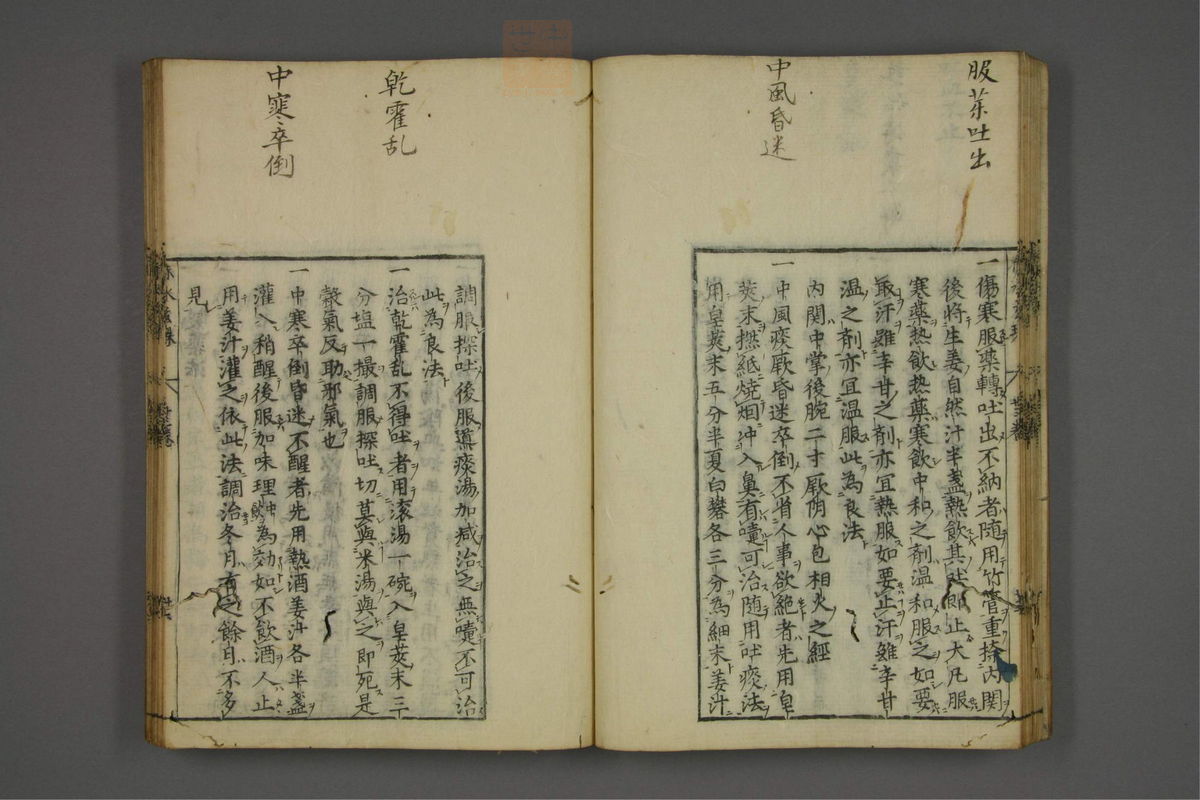 服薬吐出
中風昏迷
一傷寒服藥轉吐出不納者随用竹管重捺内関
後将生姜自然汁半盞熱飲其吐即止大凡服
寒藥熱飲熱藥寒飲中和之剤温和服之如要
取汗雖辛甘之剤亦宜熱服如要止汗雖辛甘
温之剤亦宜温服此為良法
内関中掌後腕二寸厥陰心包相火之經
一中風痰厥昏迷卒倒不省人事欲絶者先用皂
莢末撚紙焼烟冲入鼻有嚏可治随用吐痰法
用皂莢末五分半夏白礬各三分為細末姜汁
乾霍乱
中寒卒倒
調服探吐後服導痰湯加减治之無嚏不可治
此為良法
一治乾霍乱不得吐者用滚湯一碗入皂莢末三
分塩一撮調服探吐切莫與米湯與之即死是
穀氣反助邪氣也
一中寒卒倒昏迷不醒者先用熱酒姜汁各半盞
灌入稍醒後服加味理中飲為効如不飲酒人止
用姜汁灌之依此法調治冬月有之餘月不多
見